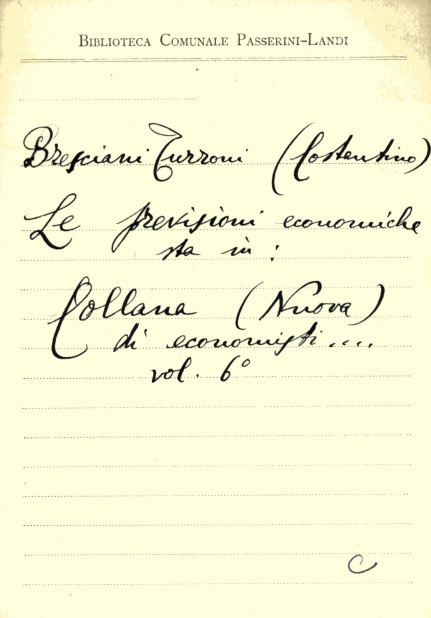 BIBLIOTECA COMUNALE PASSERINI-LANDI
Bresciani Turroni (Costentino)
Le previsioni economiche
sta in:
Collana (Nuova)
di economisti....
vol. 6°
C